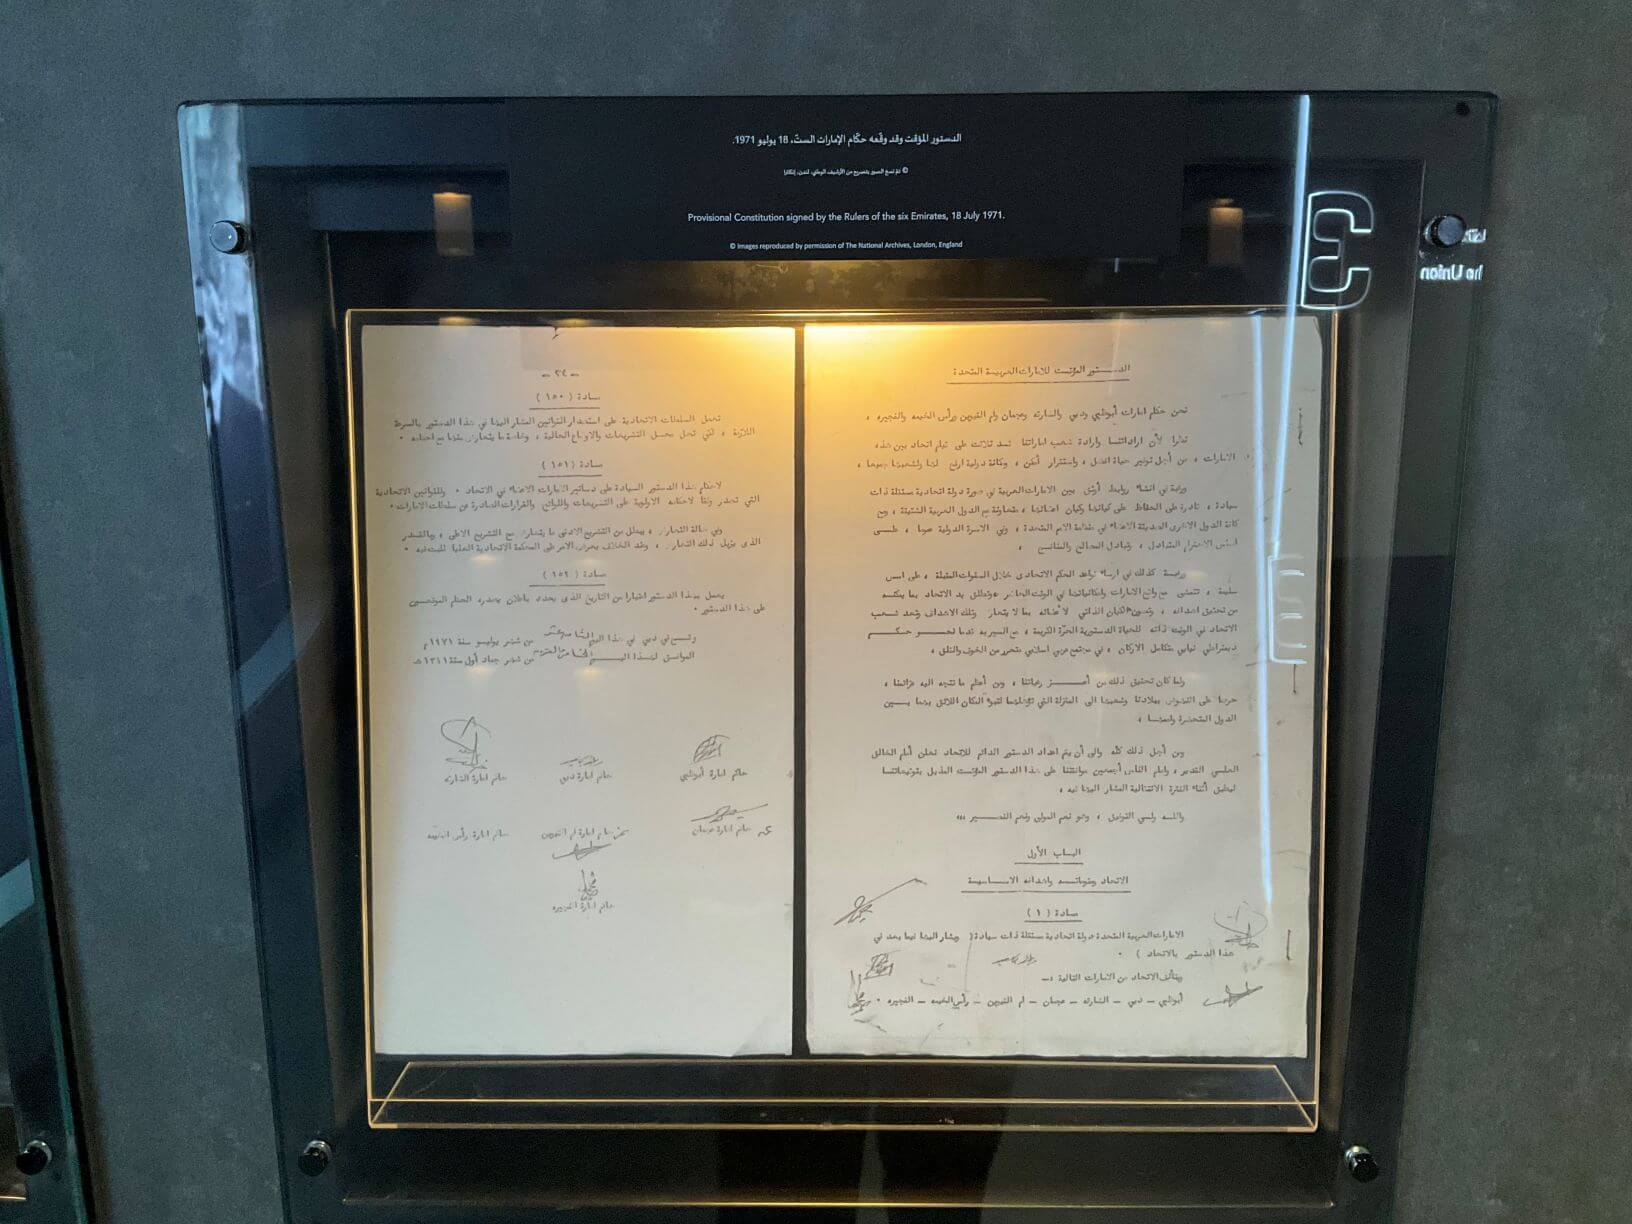 الدستور المؤقت وقد وقّعه حكّام الإمارات الستّ، 18 يوليو 1971.
© تمّ نسخ الصور بتصريح من الأرشيف الوطني، لندن، إنكلترا
Provisional Constitution signed by the Rulers of the six Emirates, 18 July 1971.
© Images reproduced by permission of The National Archives, London, England
3
الدستور المؤقت للامارات العربية المتحدة
نحن حكام امارات أبوظبي ودبي والشارقة وعجمان وام القيوين ورأس الخيمة والفجيرة ،
نظرا لأن ارادتنا وارادة شعب اماراتنا قد تلاقت على قيام اتحاد بين هذه
الامارات ، من أجل توفير حياة افضل ، واستقرار أمكن ، ومكانة دولية ارفع لها ولشعبها جميعا ،
ورغبة في انشاء روابط أوثق بين الامارات العربية في صورة دولة اتحادية مستقلة ذات
سيادة ، قادرة على الحفاظ على كيانها وكيان اعضائها ، متعاونة مع الدول العربية الشقيقة ، ومع
كافة الدول الاخرى الصديقة الاعضاء في منظمة الامم المتحدة ، وفي الاسرة الدولية عموما ، على
اساس الاحترام المتبادل ، وتبادل المصالح والمنافع ،
ورغبة كذلك في ارساء قواعد الحكم الاتحادى خلال السنوات المقبلة ، على اسس
سليمة ، تتمشى مع واقع الامارات وامكانياتها في الوقت الحاضر وتطلق يد الاتحاد بما يمكنه
من تحقيق اهدافه ، وتصون الكيان الذاتي لاعضائه بما لا يتعارض وتلك الاهداف وتعد شعب
الاتحاد في الوقت ذاته للحياة الدستورية الحرّة الكريمة ، مع السير به قدما نحو حكم
ديمقراطي نيابي متكامل الاركان ، في مجتمع عربي اسلامي متحرر من الخوف والقلق ،
ولما كان تحقيق ذلك من أعز رغباتنا ، ومن أعظم ما تتجه اليه عزائمنا ،
حرصا على النهوض ببلادنا وشعبها الى المنزلة التي تؤهلهما لتبوء المكان اللائق بهما بين
الدول المتحضرة وأممها ،
ومن أجل ذلك كلّه والى أن يتم اعداد الدستور الدائم للاتحاد نعلن أمام الخالق
العلي القدير ، وامام الناس أجمعين موافقتنا على هذا الدستور المؤقت المذيل بتوقيعاتنا
ليطبق أثناء الفترة الانتقالية المشار اليها فيه ،
والله ولي التوفيق ، وهو نعم المولى ونعم النصير ،،،
الباب الأول
الاتحاد ومقوماته واهدافه الاساسية
مادة ( ١ )
الامارات العربية المتحدة دولة اتحادية مستقلة ذات سيادة ( ويشار اليها فيما بعد في
هذا الدستور بالاتحاد ) ٠
ويتألف الاتحاد من الامارات التالية :ـ
أبوظبي ـ دبي ـ الشارقة ـ عجمان ـ ام القيوين ـ رأس الخيمة ـ الفجيرة ٠
ـ ٢٤ ـ
مادة ( ١٥٠ )
تعمل السلطات الاتحادية على استصدار القوانين المشار اليها في هذا الدستور بالسرعة
اللازمة ، لكي تحل محل التشريعات والاوضاع الحالية ، وخاصة ما يتعارض منها مع احكامه ٠
مادة ( ١٥١ )
لاحكام هذا الدستور السيادة على دساتير الامارات الاعضاء في الاتحاد ٠ وللقوانين الاتحادية
التي تصدر وفقا لاحكامه الاولوية على التشريعات واللوائح والقرارات الصادرة عن سلطات الامارات ٠
وفي حالة التعارض ، يبطل من التشريع الادنى ما يتعارض مع التشريع الاعلى ، وبالقدر
الذى يزيل ذلك التعارض ، وعند الخلاف يعرض الامر على المحكمة الاتحادية العليا للبت فيه ٠
مادة ( ١٥٢ )
يعمل بهذا الدستور اعتبارا من التاريخ الذى يحدد باعلان يصدره الحكام الموقعين
على هذا الدستور ٠
وقع في دبي في هذا اليوم الثامن عشر من شهر يوليو سنة ١٩٧١م
الموافق لهذا اليوم الخامس والعشرين من شهر جماد أول سنة ١٣٩١هـ
حاكم امارة أبوظبي
حاكم امارة دبي
حاكم امارة الشارقة
حاكم امارة عجمان
حاكم امارة ام القيوين
حاكم امارة رأس الخيمة
حاكم امارة الفجيره